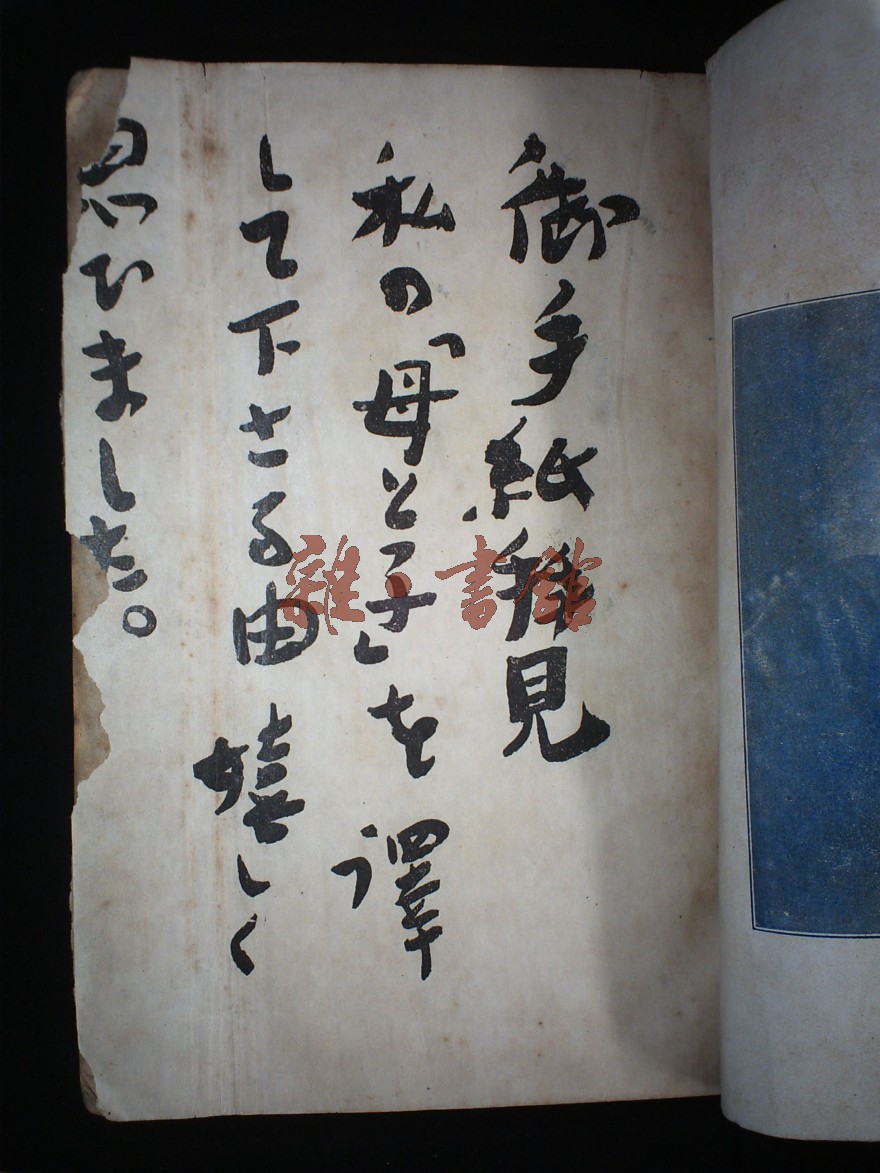 御手紙拝見
私の「母と子」を譯
して下さる由嬉しく
思ひました。
雜·書館